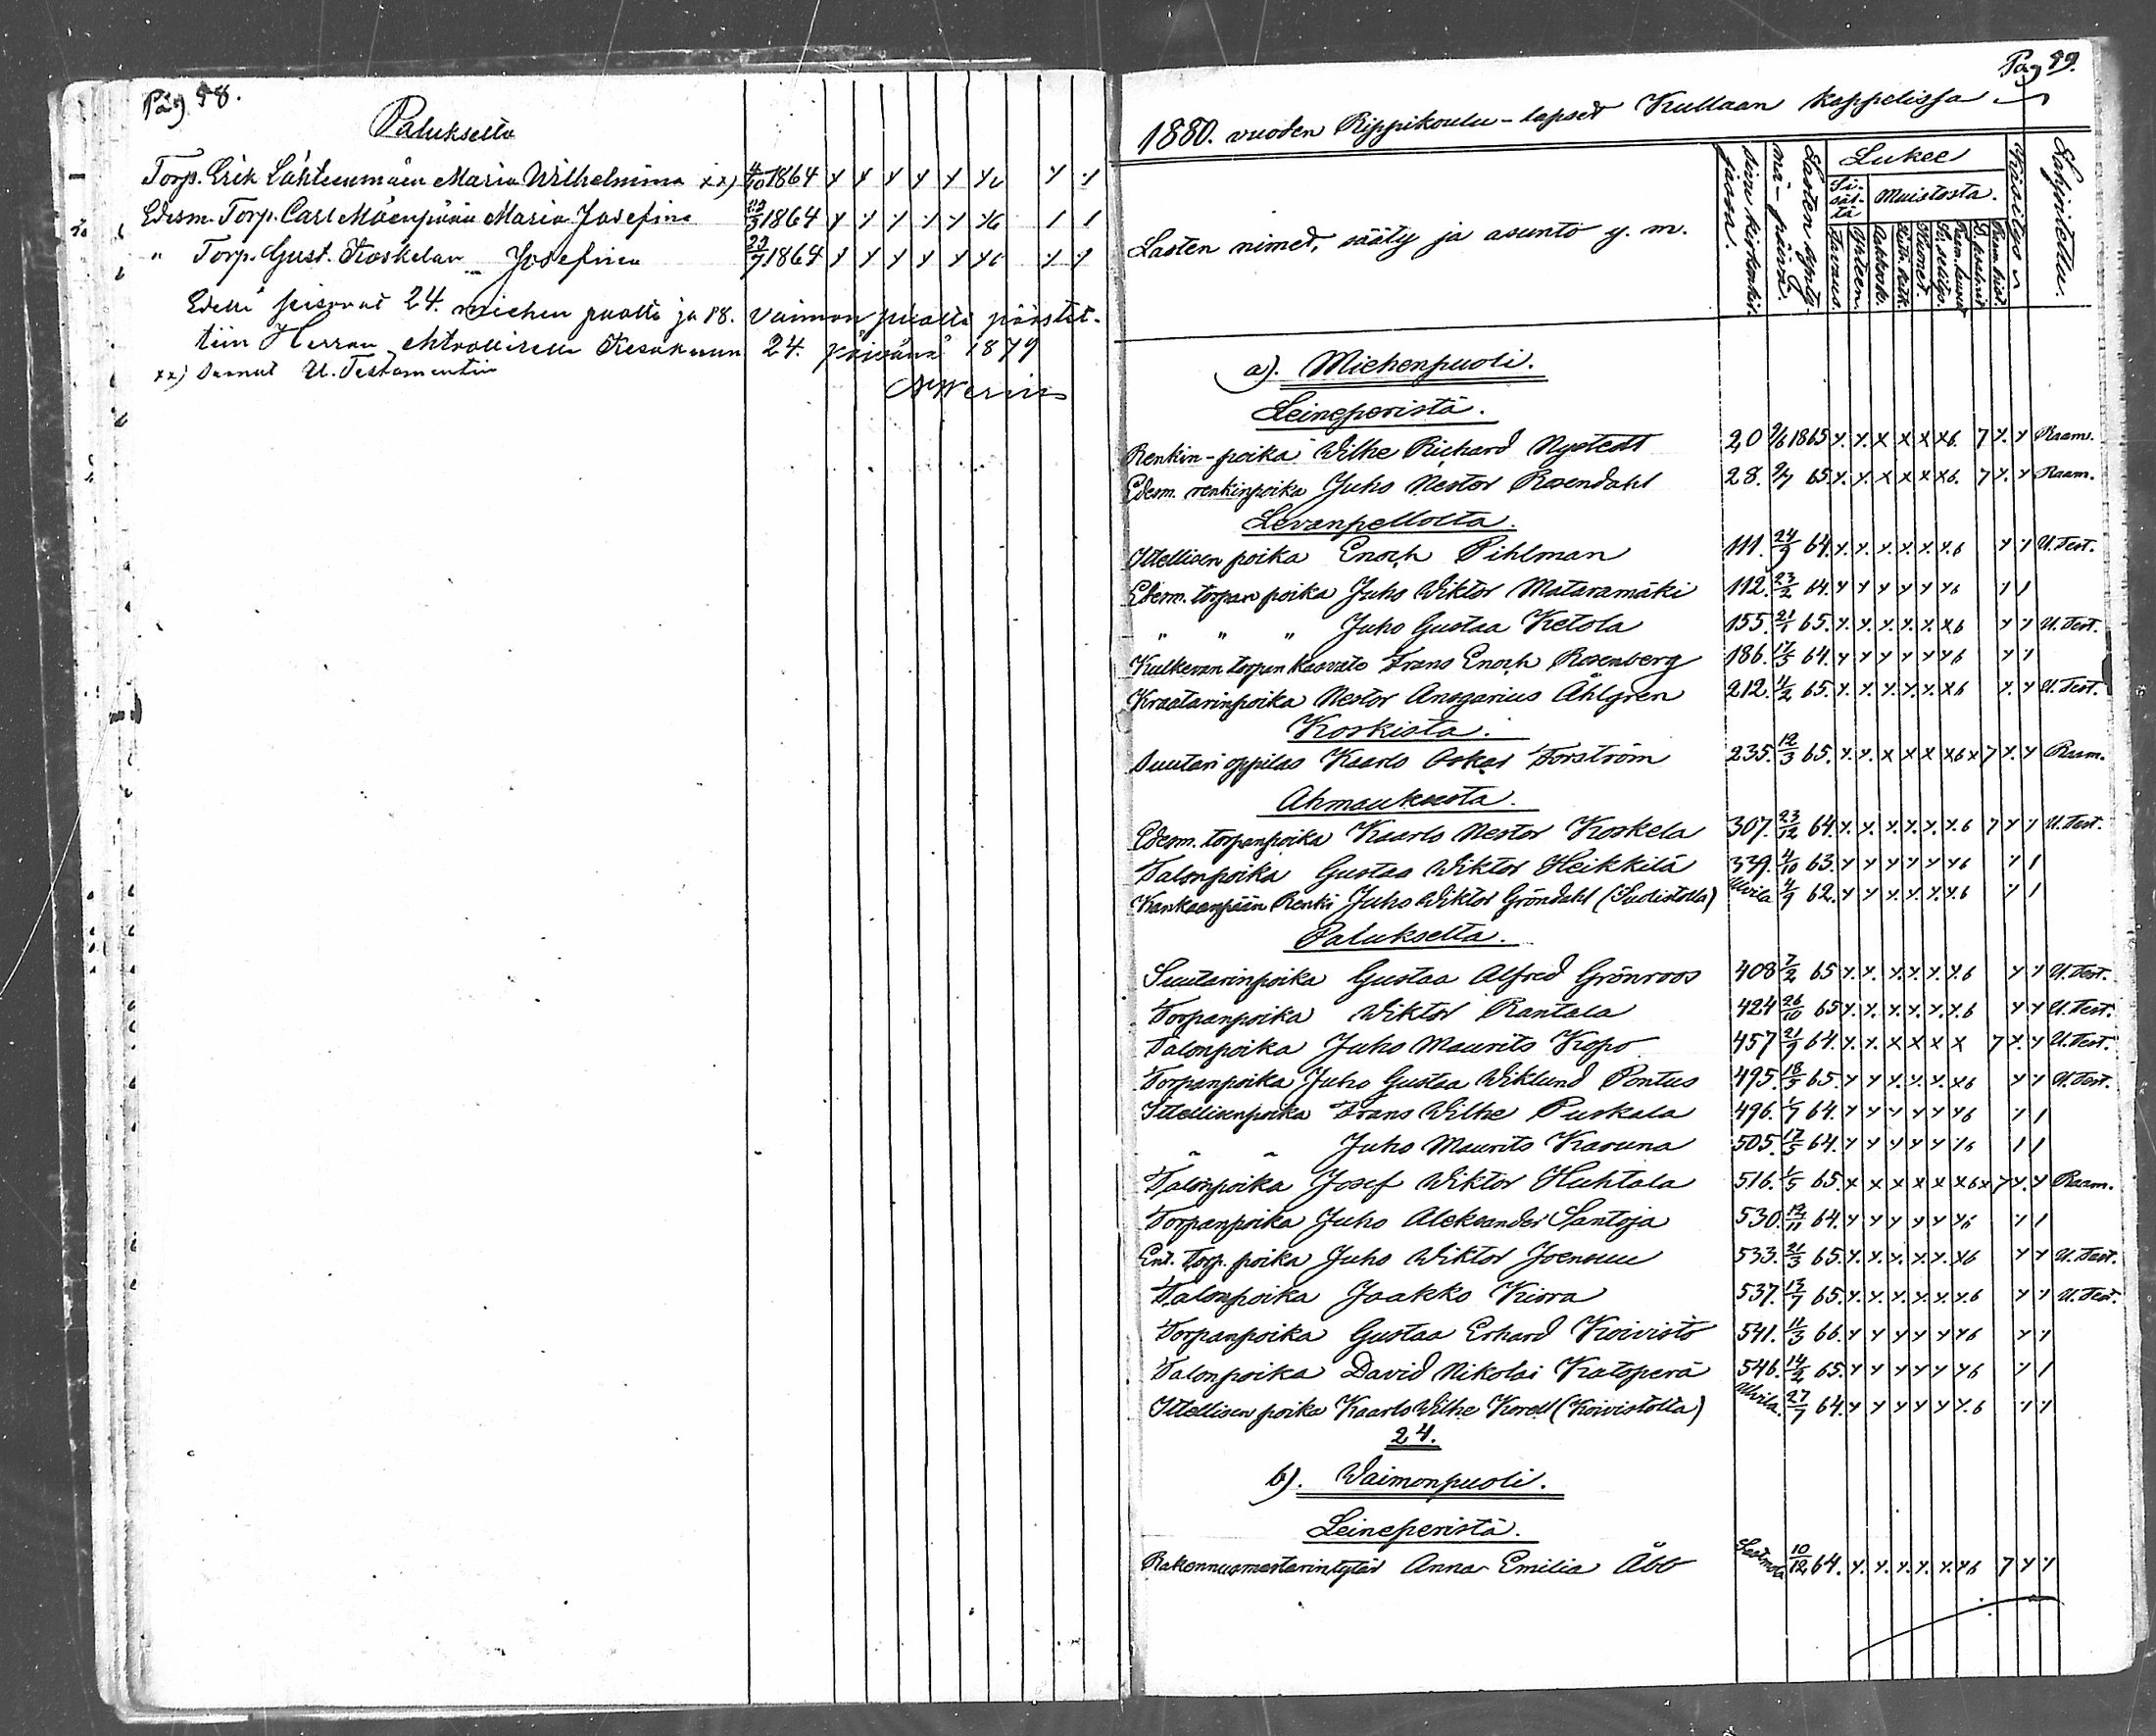 Pag 98.
Palukselta
Torp. Erik Lähteenmäen Maria Wilhelmina xx) 4/10 1864 x x x x x x6 x x
Edesm. Torp. Carl Mäenpään Maria Josefina /3 1864 x x x x x x6 1 1
" Torp. Gust. Koskelan Josefina 1864 x x x x x x6 x x
Edellä seisovat 24. miehen puolta ja 18. vaimon puolta päästet-
tiin Herran ehtoolliselle Kesäkuun 24. päivänä 1879
xx) saanut U. Testamentin
Pag 99.
1880. vuoden Rippikoulu-lapset Kullaan kappelissa
Lasten nimet, sääty ja asunto y. m.
Sivu kirkonkirjassa.
Lasten synty-mä-päivä.
Lukee
Si-säl-tä
Muistosta.
Tavaus.
Käsitys
Lahjoitettu.
a). Miehenpuoli.
Leineperistä.
Renkin-poika Wilhe Richard Nystedt 20 2/6 1865 x. x. x x x x6. 7 x. x Raam.
Edesm. renkinpoika Juho Nestor Rosendahl 28. 2/7 65 x. x. x x x x6. 7 x. x Raam.
Levanpellolta.
Itellisen poika Enoch Pihlman 111. 24/9 64. x. x. x. x. x. x.6 x x U. Test.
Edesm. torpan poika Juho Wiktor Mataramäki 112. 23/2 64. x x x x x x6 x 1
" " " Juho Gustaa Ketola 155. 21/1 65. x. x. x. x. x. x6 x x U. Test.
Kulkevan torpan kasvato Frans Enoch Rosenberg 186. 17/5 64. x x x x x x6 x 1
Kraatarinpoika Nestor Ansgarius Åhlgren 212. 4/2 65. x. x. x. x. x. x6 x. x U. Test.
Koskista.
Suutari oppilas Kaarlo Oskar Forström 235. 12/3 65. x. x. x x x x6 x 7 x. x Raam.
Ahmauksesta.
Edesm. torpanpoika Kaarlo Nestor Koskela 307. 23/12 64. x. x. x. x. x. x.6 7 x x U. Test.
Talonpoika Gustaa Wiktor Heikkilä 339. 4/10 63. x x x x x x6 x 1
Kankaanpään Renki Juho Wiktor Gröndahl (Suolistolla) Ulvila 4/9 62. x x x x. x. x.6 x 1
Palukselta.
Suutarinpoika Gustaa Alfred Grönroos 408 7/2 65 x. x. x. x. x. x.6 x x U. Test.
Torpanpoika Wiktor Rantala 424 26/10 65 x. x. x. x. x. x.6 x x U. Test.
Talonpoika Juho Maurits Kopo 457 21/9 64. x. x. x x x x 7 x. x U. Test.
Torpanpoika Juho Gustaa Wiklund Pontus 495. 18/5 65. x x x. x. x. x6 x x U. Test.
Itellisenpoika Frans Wilhe Puskala 496. 1/7 64. x x x x x x6 x 1
" " Juho Maurits Karuna 505. 17/5 64. x x x x x x6 1 1
Talonpoika Josef Wiktor Huhtala 516. 1/5 65. x x x x x x6 x 7 x. x Raam.
Torpanpoika Juho Aleksander Santoja 530. 12/11 64. x x x x x x6 x 1
Ent. Torp. poika Juho Wiktor Joensuu 533. 21/3 65. x. x. x. x. x. x6 x x U. Test.
Talonpoika Jaakko Kiera 537. 13/7 65. x. x. x. x. x. x.6 x x U. Test.
Torpanpoika Gustaa Erhard Koivisto 541. 11/3 66. x x x x x x6 x x
Talonpoika David Nikolai Katoperä 546. 14/2 65. x x x x x x6 x 1
Itellisen poika Kaarlo Wilhe Korell (Koivistolta) Ulvila. 27/7 64. x x x x x x.6 x x
24.
b). Waimonpuoli.
Leineperistä.
Rakennusmestarintytär Anna Emilia Åbb 10/12 64. x. x. x. x. x. x6 7 x x